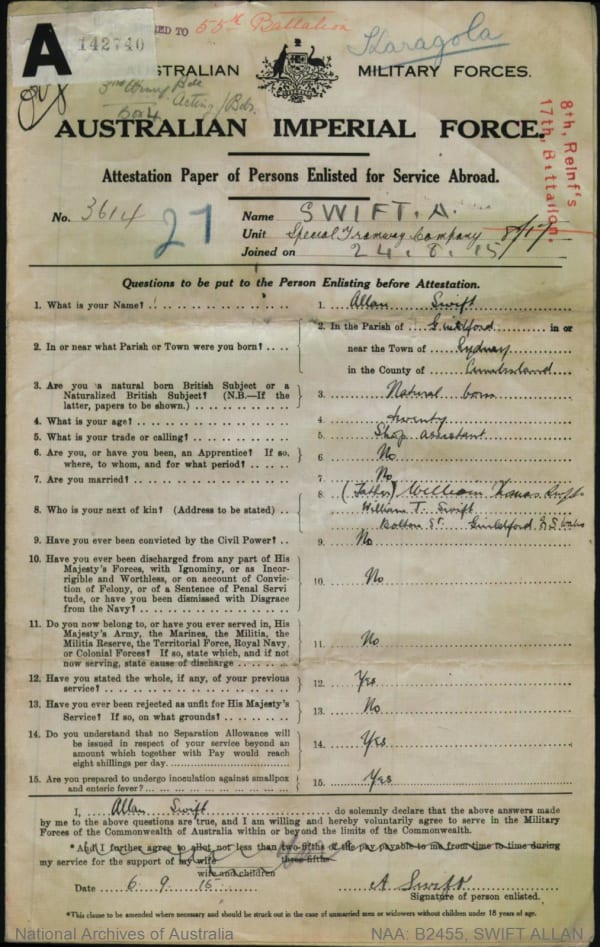 A
142740
TO 55th Battalion
Karagola
AUSTRALIAN MILITARY FORCES.
Acting/Bdr.
AUSTRALIAN IMPERIAL FORCE.
8th, Reinf's
17th, Battalion.
Attestation Paper of Persons Enlisted for Service Abroad.
No. 3614
27
Name SWIFT. A.
Unit Special Tramway Company 8/17
Joined on 24.8.15
Questions to be put to the Person Enlisting before Attestation.
1. What is your Name? 1. Allan Swift
2. In or near what Parish or Town were you born? 2. In the Parish of Guildford in or
near the Town of Sydney
in the County of Cumberland
3. Are you a natural born British Subject or a
Naturalized British Subject? (N.B.—If the
latter, papers to be shown.) 3. Natural born
4. What is your age? 4. twenty
5. What is your trade or calling? 5. Shop assistant
6. Are you, or have you been, an Apprentice? If so,
where, to whom, and for what period? 6. No
7. Are you married? 7. No
8. Who is your next of kin? (Address to be stated) 8. (Father) William Thomas Swift
William T. Swift
Bolton St. Guildford N S Wales
9. Have you ever been convicted by the Civil Power? 9. No
10. Have you ever been discharged from any part of His
Majesty's Forces, with Ignominy, or as Incor-
rigible and Worthless, or on account of Convic-
tion of Felony, or of a Sentence of Penal Servi
tude, or have you been dismissed with Disgrace
from the Navy? 10. No
11. Do you now belong to, or have you ever served in, His
Majesty's Army, the Marines, the Militia, the
Militia Reserve, the Territorial Force, Royal Navy,
or Colonial Forces? If so, state which, and if not
now serving, state cause of discharge 11. No
12. Have you stated the whole, if any, of your previous
service? 12. Yes
13. Have you ever been rejected as unfit for His Majesty's
Service? If so, on what grounds? 13. No
14. Do you understand that no Separation Allowance will
be issued in respect of your service beyond an
amount which together with Pay would reach
eight shillings per day. 14. Yes
15. Are you prepared to undergo inoculation against smallpox
and enteric fever? 15. Yes
I, Allan Swift do solemnly declare that the above answers made
by me to the above questions are true, and I am willing and hereby voluntarily agree to serve in the Military
Forces of the Commonwealth of Australia within or beyond the limits of the Commonwealth.
*And I further agree to allot not less than two-fifths of the pay payable to me from time to time during
three-fifths
my service for the support of my wife
wife and children
Date 6.9.15 A. Swift
Signature of person enlisted.
*This clause to be amended where necessary and should be struck out in the case of unmarried men or widowers without children under 18 years of age.
National Archives of Australia NAA: B2455, SWIFT ALLAN